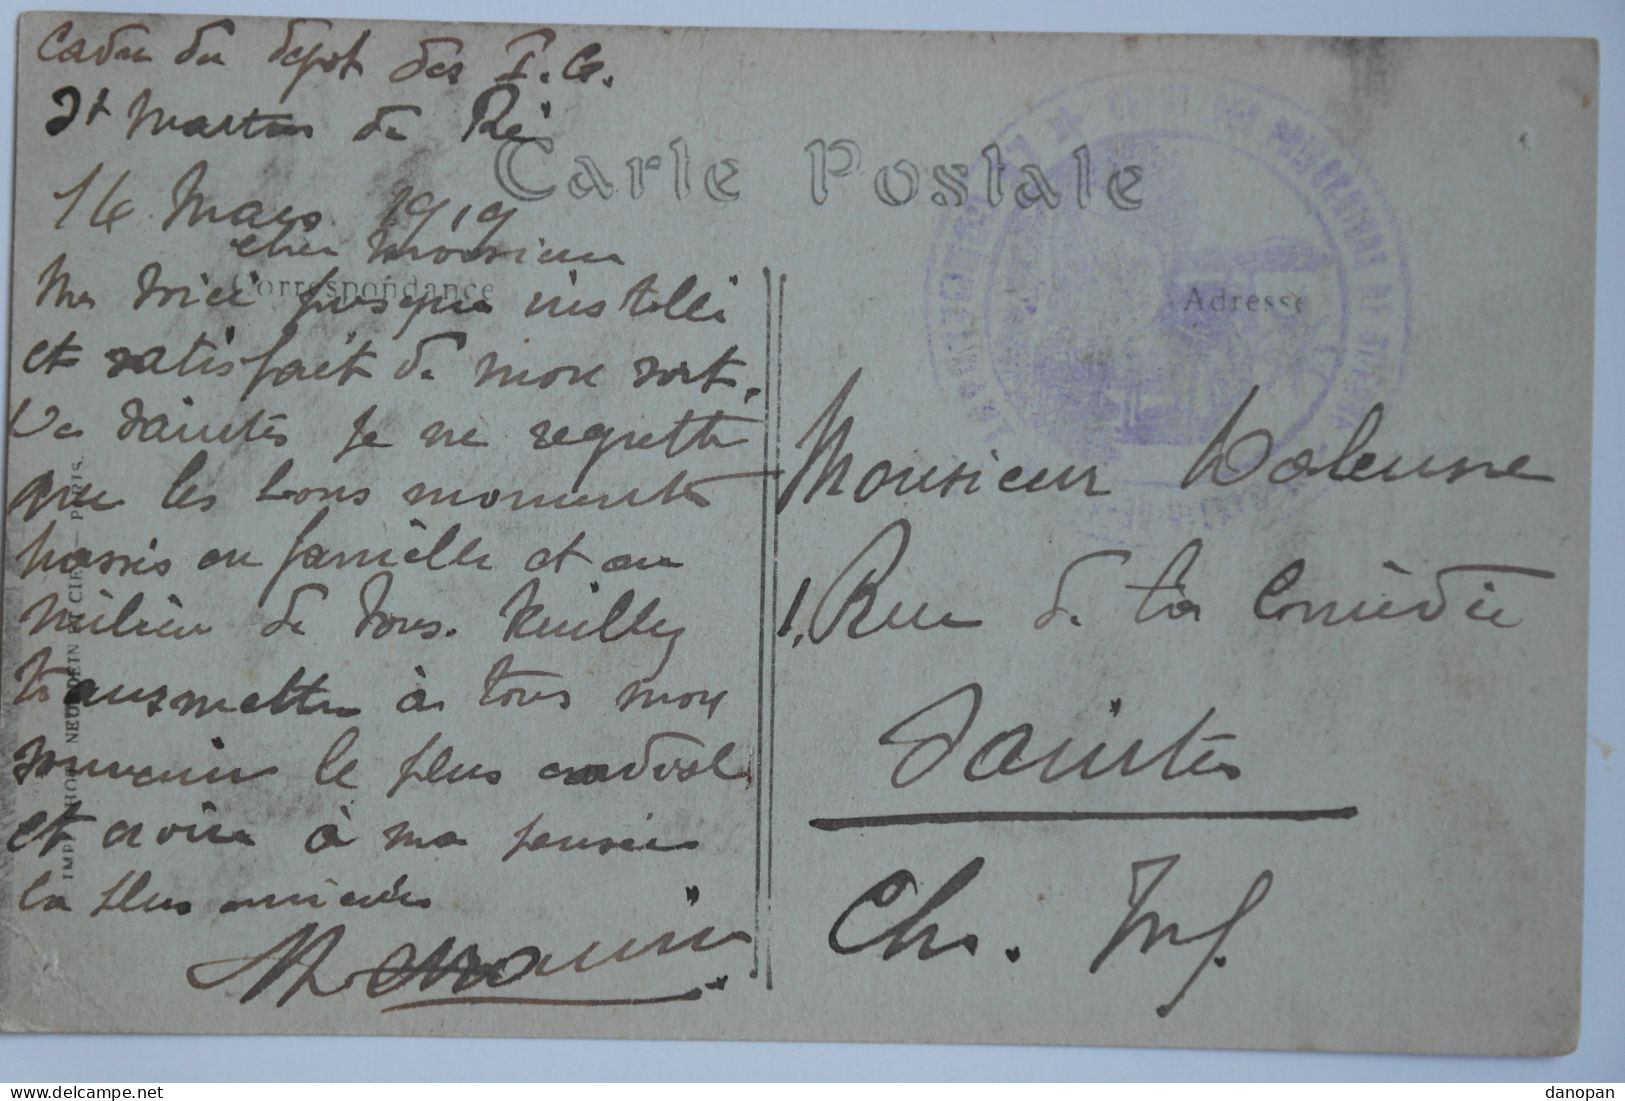 Cadre du depot des P.G.
St Martin de Ré
Carte Postale
16 Mars 1919
cher Monsieur
Correspondance
Me voici presque installé
et satisfait de mon sort.
De Saintes je ne regrette
que les bons moments
passés en famille et au
milieu de vous. Veuillez
transmettre à tous mon
souvenir le plus cordial
et croire à ma pensée
la plus sincère
IMP. PHOT. NEURDEIN ET CIE — PARIS.
Adresse
Monsieur
1, Rue de la Comédie
Saintes
Ch. Inf.
delcampe.net
danopan